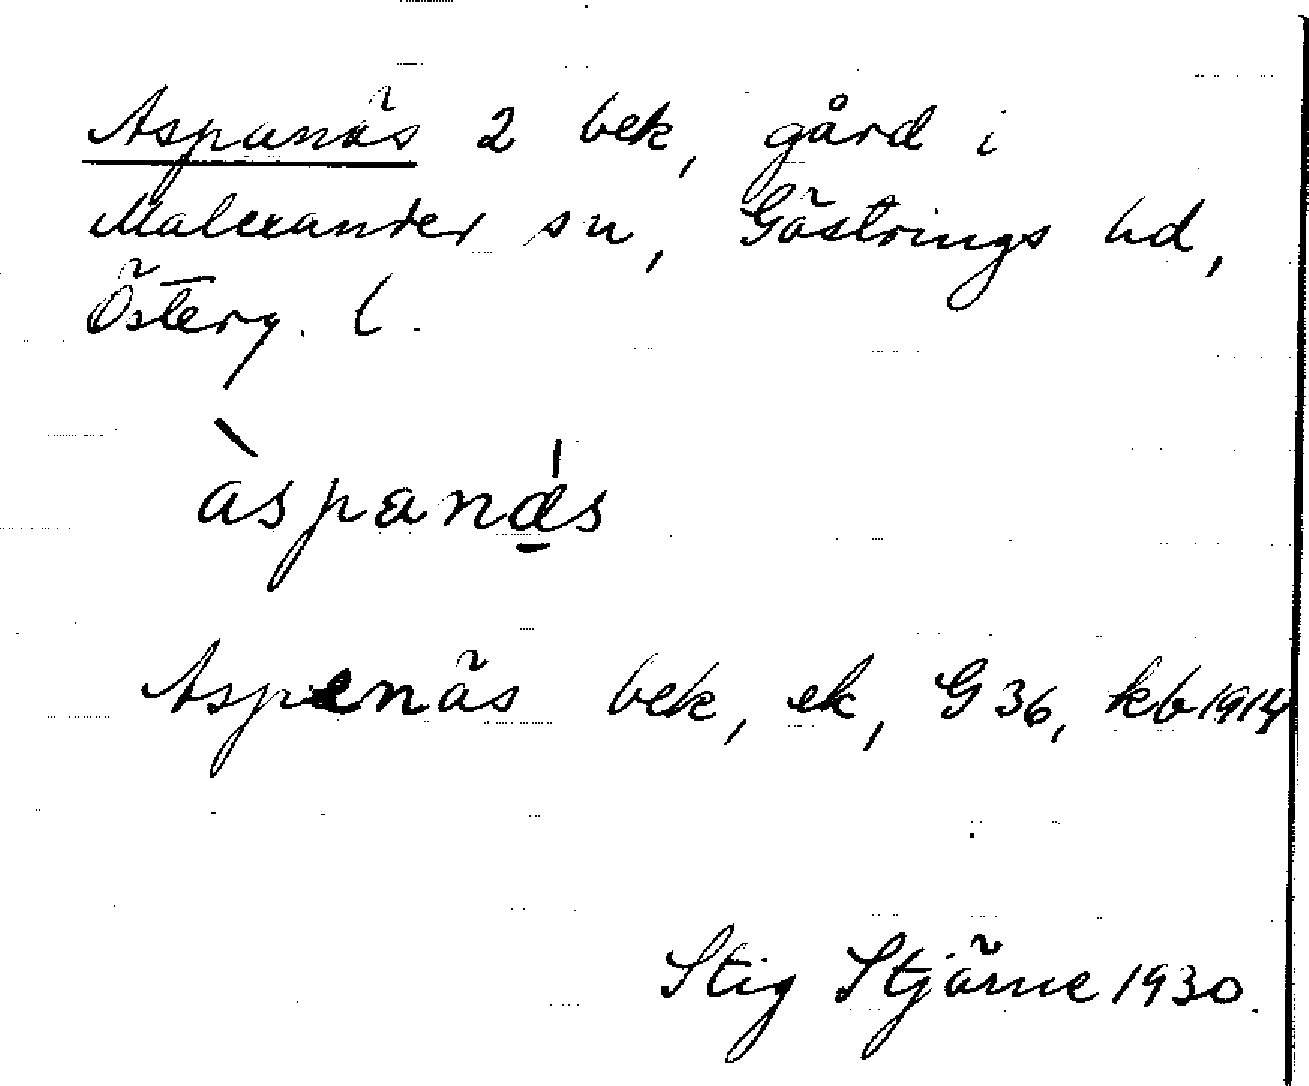 Aspanäs 2 bek, gård i
Malexander sn, Göstrings hd,
Österg. l.
àspanä̱́s
Aspenäs bek, ek, G 36, kb 1914
Stig Stjärne 1930.